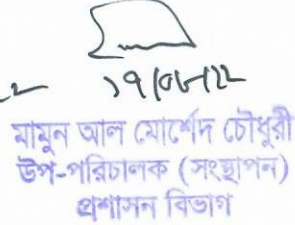 মামুন আল মোর্শেদ চৌধুরী
উপ-পরিচালক (সংস্থাপন)
প্রশাসন বিভাগ